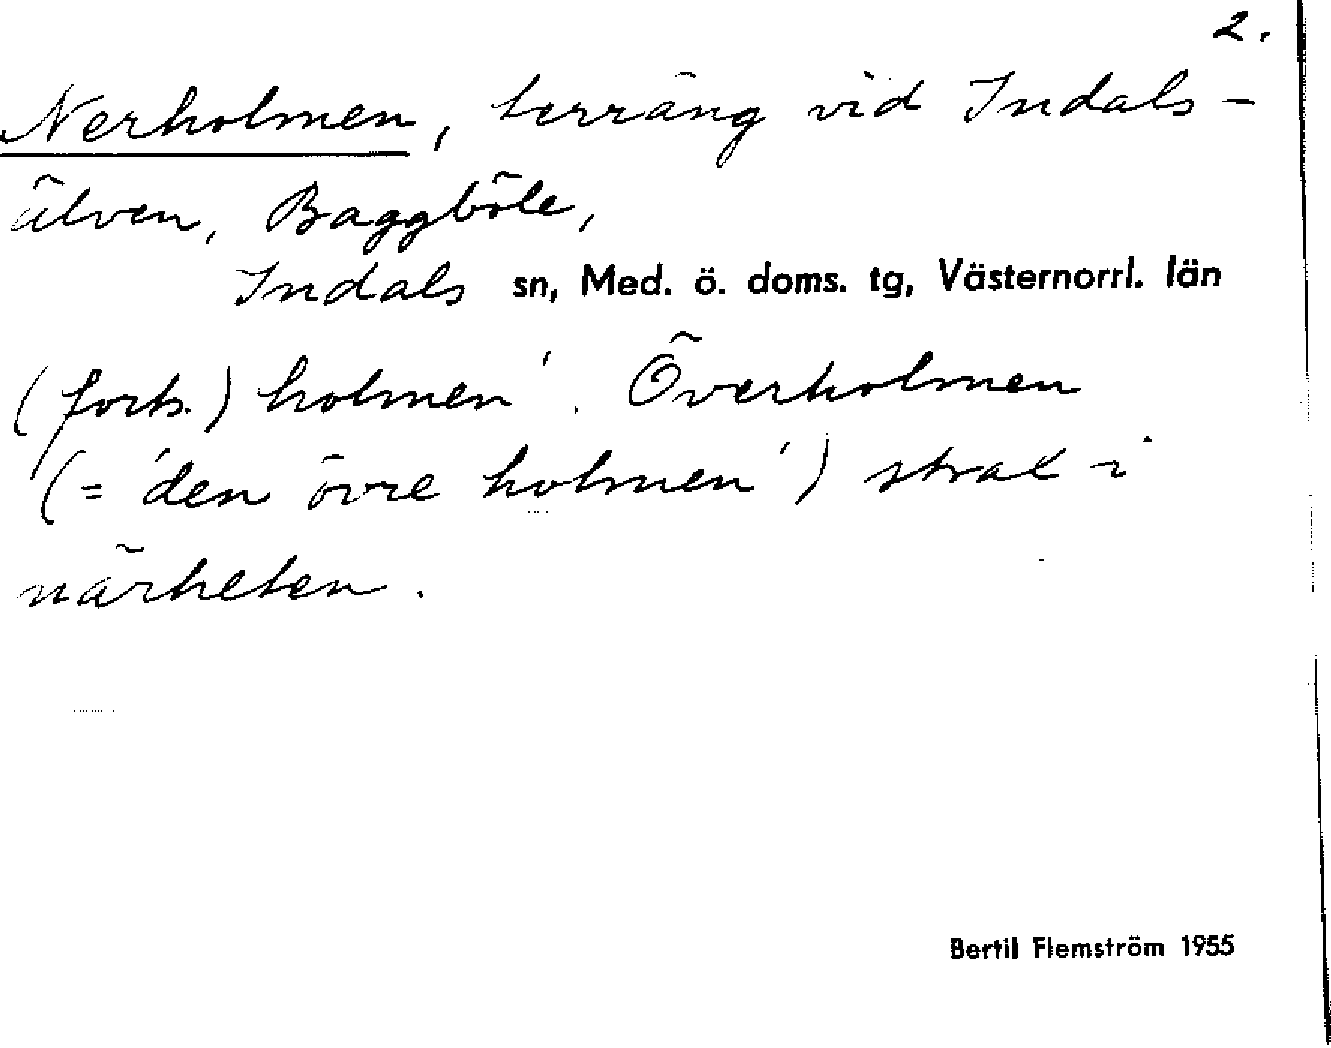 2.
Nerholmen, terräng vid Indals-
älven, Baggböle,
Indals sn, Med. ö. doms. tg, Västernorrl. län
(forts.) holmen'. Överholmen
(= 'den övre holmen') strax i
närheten.
Bertil Flemström 1955